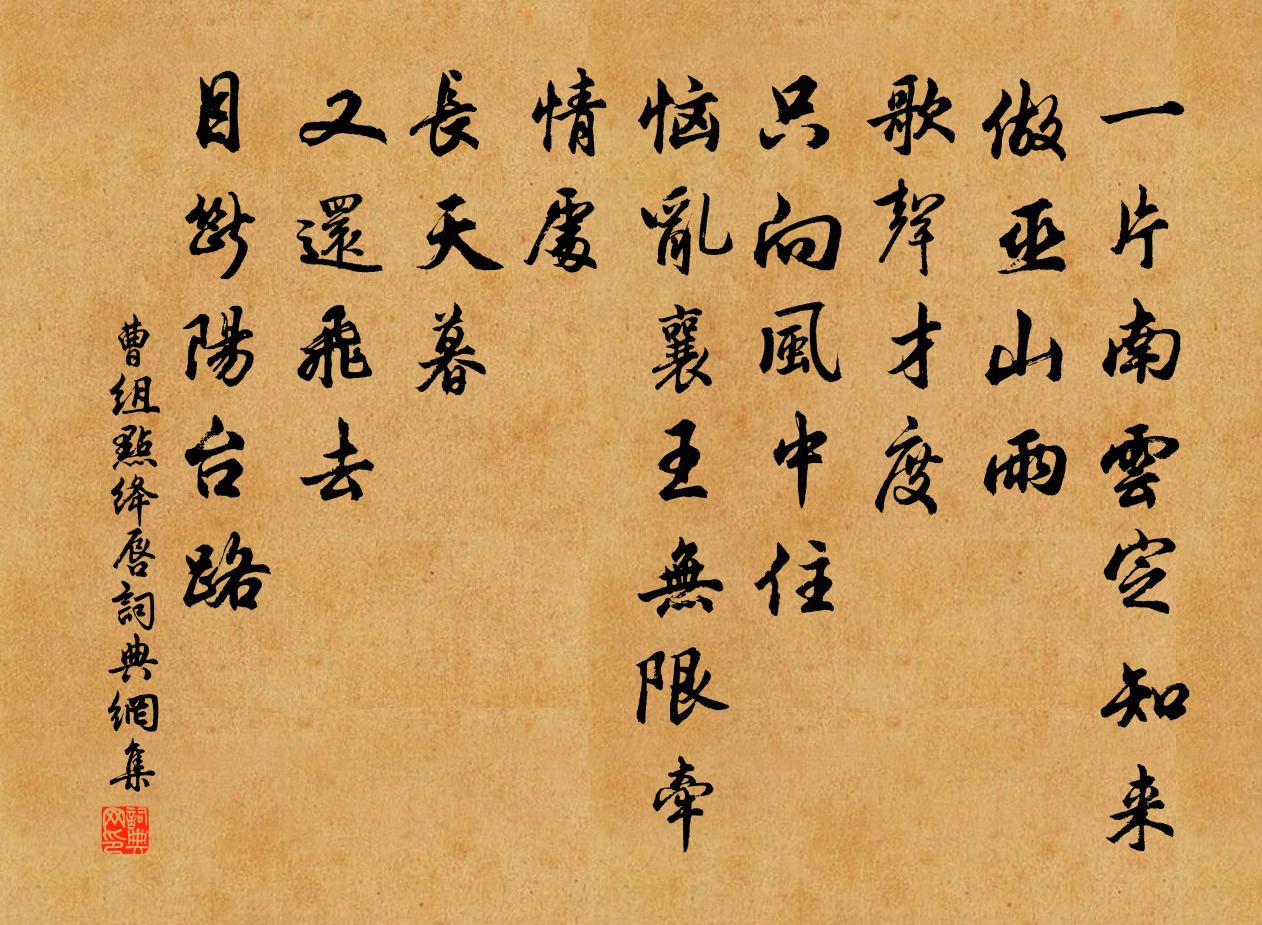 一片南雲定知来
做巫山雨
歌聲才度
只向風中住
惱亂襄王無限牽
情處
長天暮
又還飛去
目斷陽台路
曹組點絳唇詞典網集
詞典网印